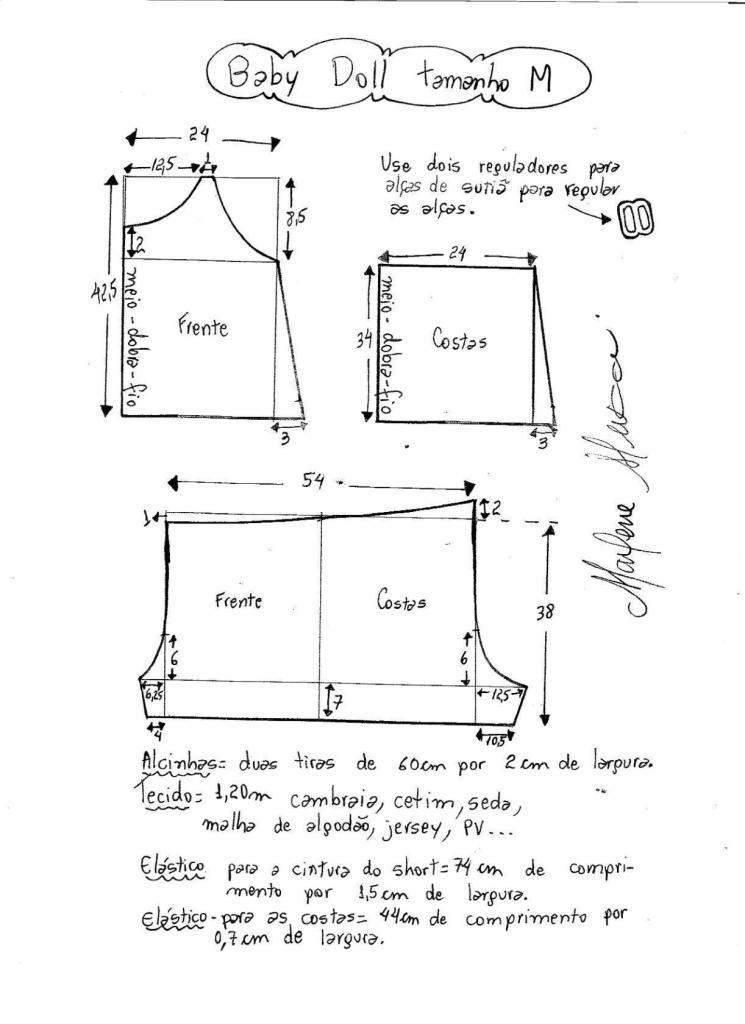 Baby Doll tamanho M
24
12,5
1
8,5
2
42,5
meio-dobra-fio
Frente
3
Use dois reguladores para
alças de sutiã para regular
as alças.
24
34
meio-dobra-fio
Costas
3
Marlene
54
1
2
Frente
Costas
38
6
6
6,25
12,5
7
4
10,5
Alcinhas= duas tiras de 60cm por 2cm de largura.
Tecido= 1,20m cambraia, cetim, seda,
malha de algodão, jersey, PV...
Elástico para a cintura do short=74cm de compri-
mento por 1,5cm de largura.
Elástico-para as costas= 44cm de comprimento por
0,7cm de largura.